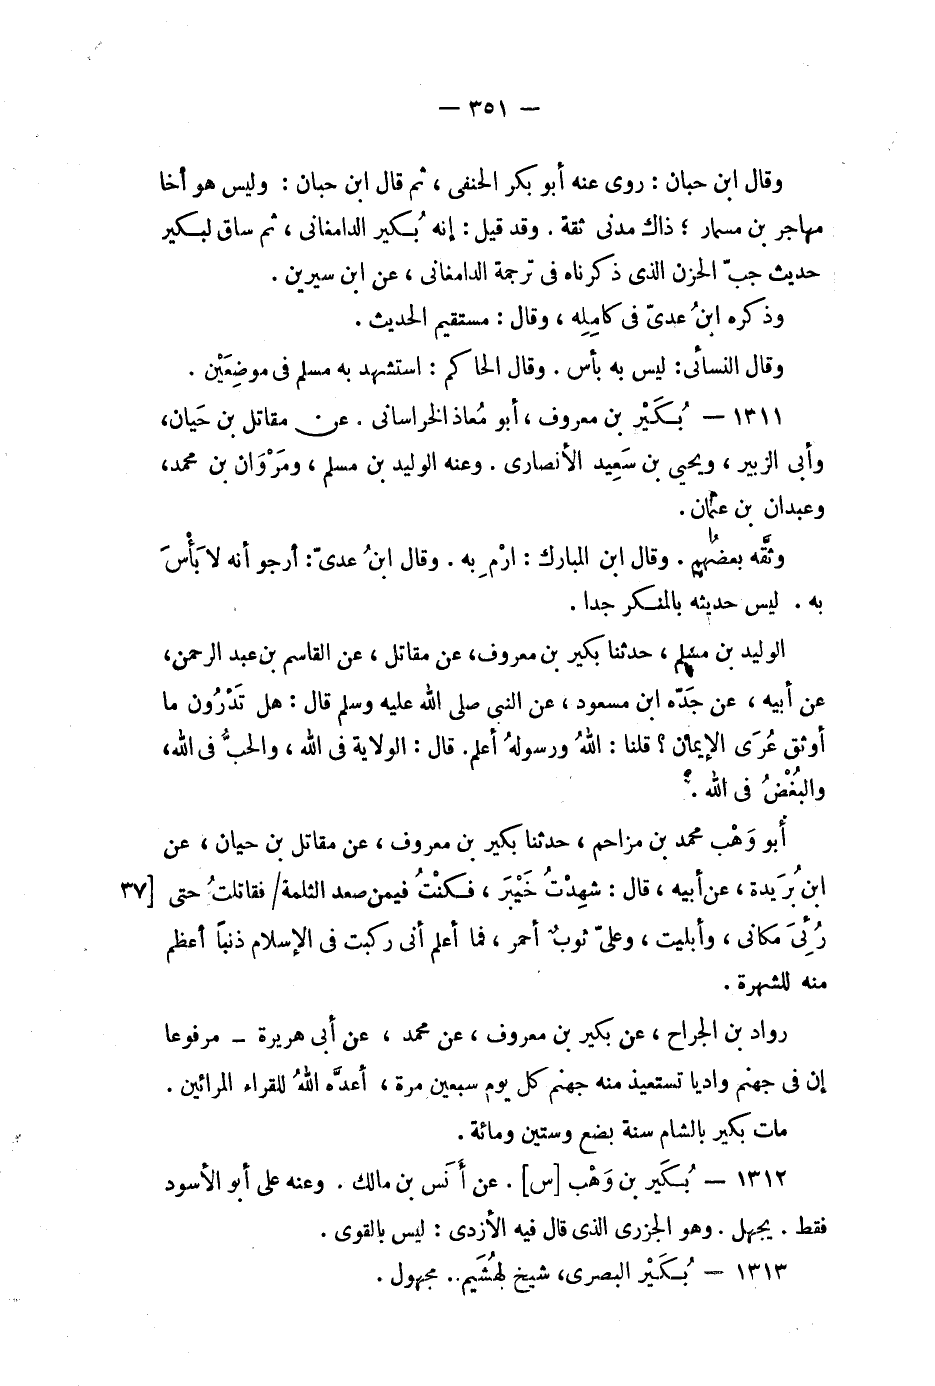 — ٣٥١ —
وقال ابن حبان : روى عنه أبو بكر الحنفى ، ثم قال ابن حبان : وليس هو أخا
مهاجر بن مسمار ؛ ذاك مدنى ثقة . وقد قيل : إنه بُكير الدامغانى ، ثم ساق لبكير
حديث جبّ الحزن الذى ذكرناه فى ترجمة الدامغانى ، عن ابن سيرين .
وذكره ابنُ عدىّ فى كامِلِه ، وقال : مستقيم الحديث .
وقال النسائى : ليس به بأس . وقال الحاكم : استشهد به مسلم فى موضِعَيْن .
١٣١١ — بُكَيْر بن معروف ، أبو مُعاذ الخراسانى . عن مقاتل بن حَيان ،
وأبى الزبير ، ويحيى بن سَعِيد الأنصارى . وعنه الوليد بن مسلم ، ومَرْوَان بن محمد ،
وعبدان بن عثمان .
وثَّقه بعضُهم . وقال ابن المبارك : ارْمِ به . وقال ابنُ عدىّ : أرجو أنه لا بَأْسَ
به . ليس حديثه بالمنكر جدا .
الوليد بن مسلم ، حدثنا بكير بن معروف ، عن مقاتل ، عن القاسم بن عبد الرحمن ،
عن أبيه ، عن جَدّه ابن مسعود ، عن النبى صلى الله عليه وسلم قال : هل تَدْرُون ما
أوثق عُرَى الإيمان ؟ قلنا : اللهُ ورسولهُ أعلم . قال : الولاية فى الله ، والحبُّ فى الله ،
والبُغْضُ فى الله .
أبو وَهْب محمد بن مزاحم ، حدثنا بكير بن معروف ، عن مقاتل بن حيان ، عن
ابن بُرَيدة ، عن أبيه ، قال : شهِدْتُ خَيْبَر ، فكنْتُ فيمن صعد الثلمة / فقاتلتُ حتى [٣٧
رُئِىَ مكانى ، وأبليت ، وعلىّ ثوبٌ أحمر ، فما أعلم أنى ركبت فى الإسلام ذنباً أعظم
منه للشهرة .
رواد بن الجراح ، عن بكير بن معروف ، عن محمد ، عن أبى هريرة – مرفوعا
إن فى جهنم واديا تستعيذ منه جهنم كل يوم سبعين مرة ، أعدَّه اللهُ للقراء المرائين .
مات بكير بالشام سنة بضع وستين ومائة .
١٣١٢ — بُكَير بن وَهْب [س] . عن أَنَس بن مالك . وعنه على أبو الأسود
فقط . يجهل . وهو الجزرى الذى قال فيه الأزدى : ليس بالقوى .
١٣١٣ — بُكَيْر البصرى ، شيخ لهُشَيم .. مجهول .